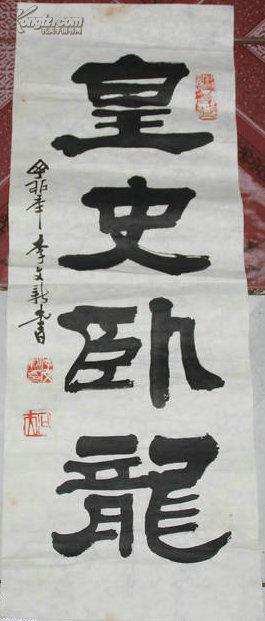 Kongfz.com
孔夫子旧书网
皇史臥龍
李文新書